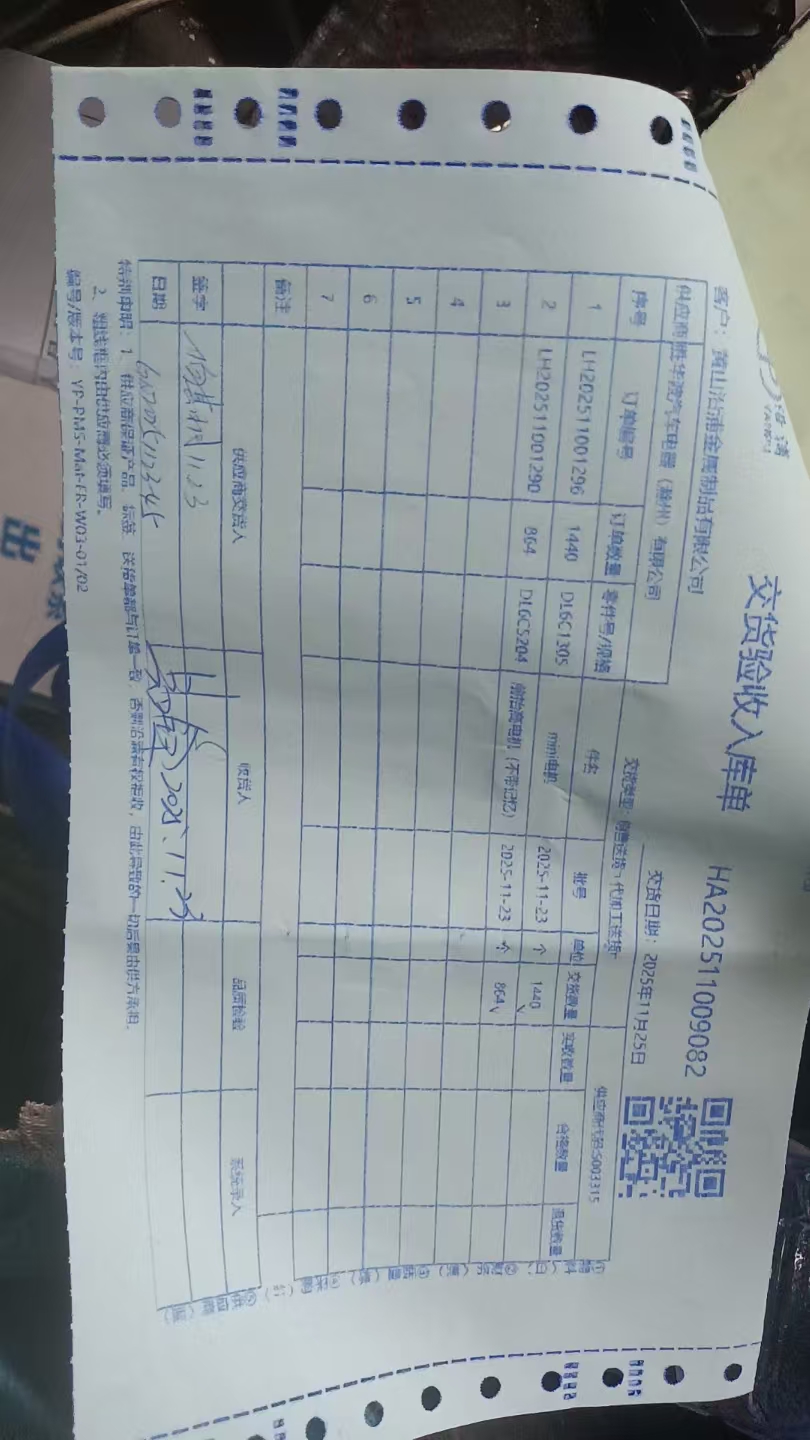 交货验收入库单 HA202511009082
客户：黄山沿浦金属制品有限公司 交货日期：2025年11月25日
供应商 胜华波汽车电器（滁州）有限公司 交货类型：销售送货 代加工送货 供应商代码:S003315
序号 订单编号 订单数量 零件号/规格 件名 批号 单位 交货数量 实收数量 合格数量 退货数量
1 LH202511001296 1440 DL6C1305 mini电机 2025-11-23 个 1440
2 LH202511001290 864 DL6C5204 前抬高电机（不带记忆） 2025-11-23 个 864
3
4
5
6
7
备注
供应商交货人 收货人 品质检验 系统录入
签字 11.23
日期 2025.11.25
特别申明：1、供应商保证产品、标签、送货单都与订单一致，否则沿浦有权拒收，由此导致的一切后果由供方承担。
2、粗线框内由供应商必须填写。
编号/版本号：YP-PMS-Mat-FR-W03-01/02